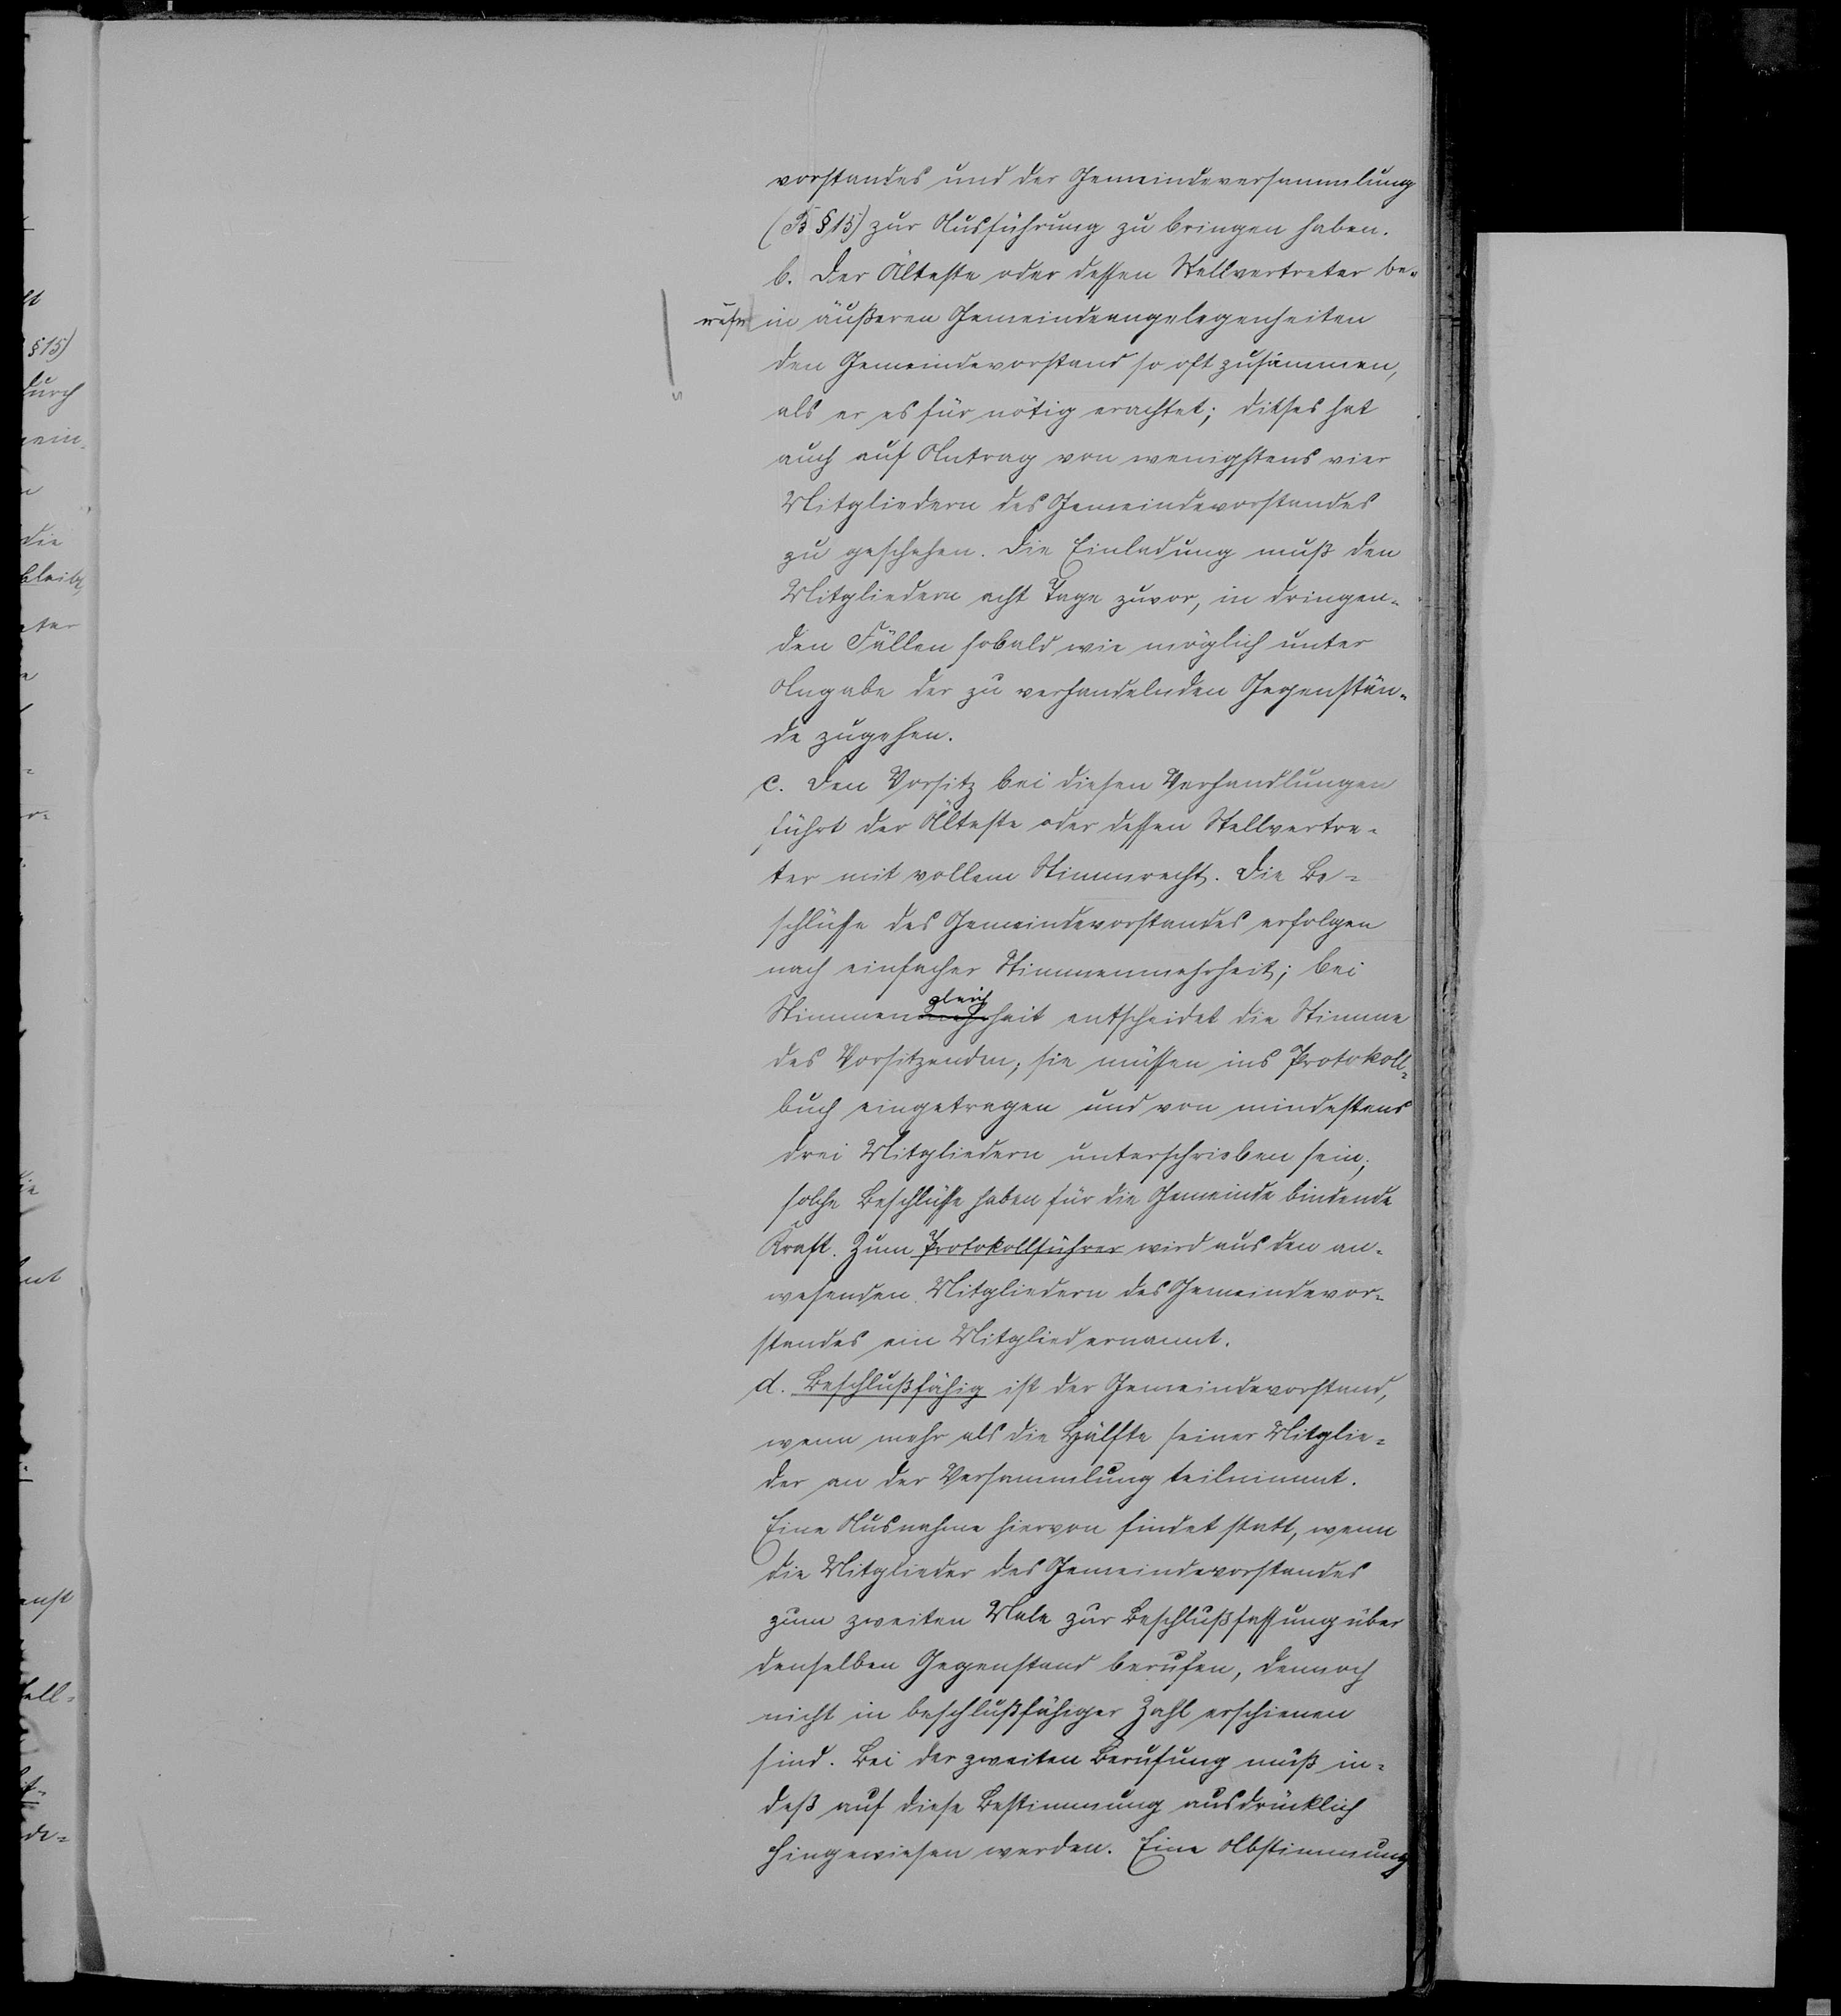 vorstandes und der Gemeindeversammlung
(B § 15) zur Ausführung zu bringen haben.
b. Der Älteste oder dessen Stellvertreter be-
ruft in äußeren Gemeindeangelegenheiten
den Gemeindevorstand so oft zusammen,
als er es für nötig erachtet; dieses hat
auch auf Antrag von wenigstens vier
Mitgliedern des Gemeindevorstandes
zu geschehen. Die Einladung muß den
Mitgliedern acht Tage zuvor, in dringen-
den Fällen sobald wie möglich unter
Angabe der zu verhandelnden Gegenstän-
de zugehen.
c. Den Vorsitz bei diesen Verhandlungen
führt der Älteste oder dessen Stellvertre-
ter mit vollem Stimmrecht. Die Be-
schlüsse des Gemeindevorstandes erfolgen
nach einfacher Stimmenmehrheit; bei
gleich
Stimmenmehrheit entscheidet die Stimme
des Vorsitzenden; sie müssen ins Protokoll-
buch eingetragen und von mindestens
drei Mitgliedern unterschrieben sein;
solche Beschlüsse haben für die Gemeinde bindende
Kraft. Zum Protokollführer wird aus den an-
wesenden Mitgliedern des Gemeindevor-
standes ein Mitglied ernannt.
d. Beschlußfähig ist der Gemeindevorstand,
wenn mehr als die Hälfte seiner Mitglie-
der an der Versammlung teilnimmt.
Eine Ausnahme hiervon findet statt, wenn
die Mitglieder des Gemeindevorstandes
zum zweiten Male zur Beschlußfassung über
denselben Gegenstand berufen, dennoch
nicht in beschlußfähiger Zahl erschienen
sind. Bei der zweiten Berufung muß in-
deß auf diese Bestimmung ausdrücklich
hingewiesen werden. Eine Abstimmung